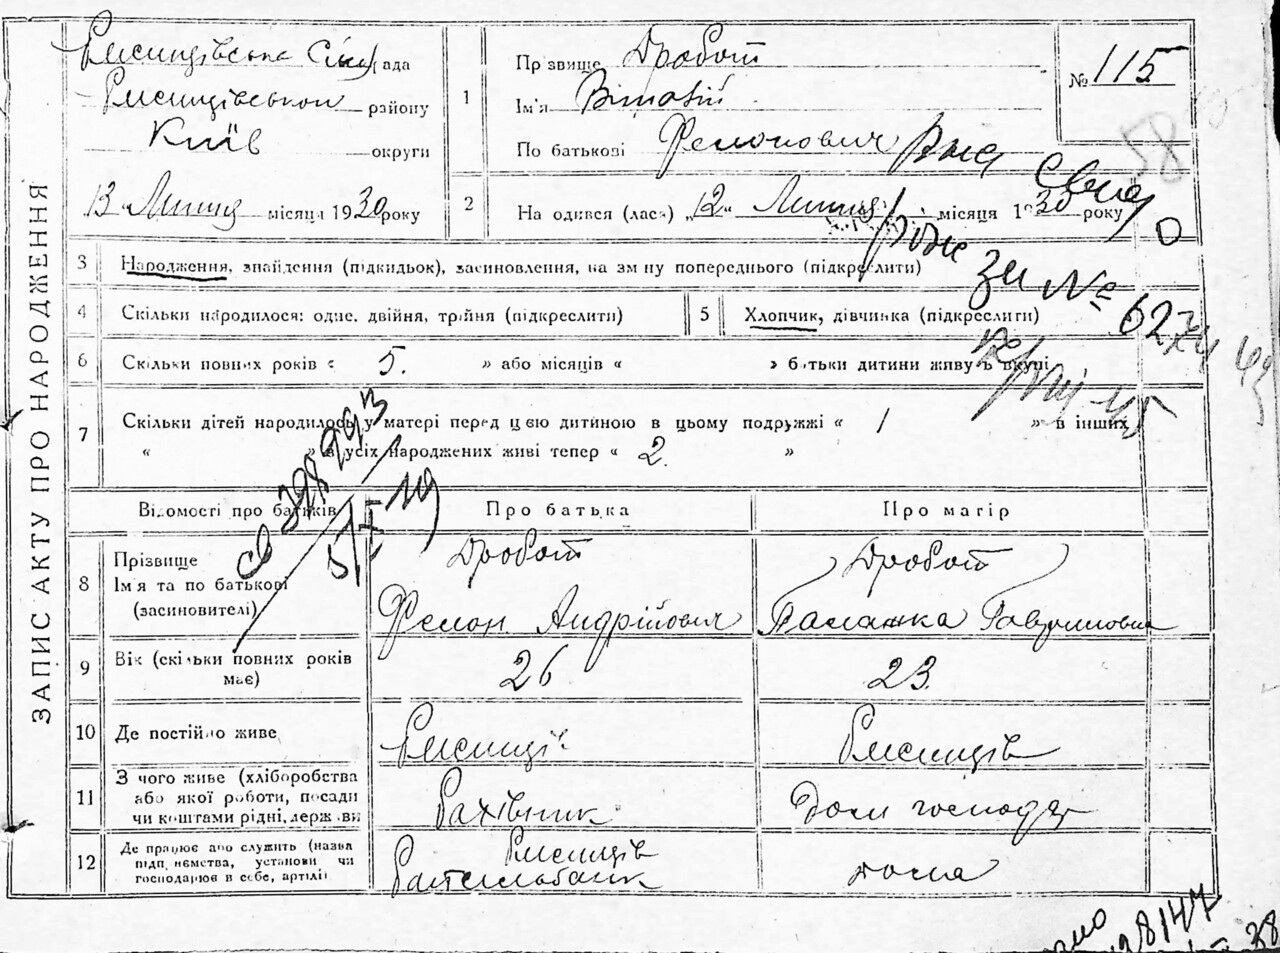 ЗАПИС АКТУ ПРО НАРОДЖЕННЯ
Ржищівська рада
Ржищівськой району
Київ округи
13 Липня місяця 1930 року
1
Прізвище Дробот
Ім'я Віталій
По батькові Филонович
№ 115
58
2
Народився (лась) „12" Липня місяця 1930 року
Выд
свид
О
рожд
за №
3
Народження, знайдення (підкидьок), засиновлення, на зміну попереднього (підкреслити)
4
Скільки народилося: одне, двійня, трійня (підкреслити)
5
Хлопчик, дівчинка (підкреслити)
6
Скільки повних років « 5. » або місяців « » батьки дитини живуть вкупі
7
Скільки дітей народилось у матері перед цією дитиною в цьому подружжі « 1 » в інших
« » в усіх народжених живі тепер « 2 »
Відомості про батьків
Про батька
Про матір
8
Прізвище
Ім'я та по батькові
(засиновителі)
Дробот
Филон Андрійович
Дробот
Палажка Гавриловна
9
Вік (скільки повних років
має)
26
23
10
Де постійно живе
Ржищів
Ржищів
11
З чого живе (хліборобства
або якої роботи, посади
чи коштами рідні, держави
Рахівник
Дом господар
12
Де працює або служить (назва
підприємства, установи чи
господарює в себе, артілі)
Ржищів
Райсільбанк
дома
8147